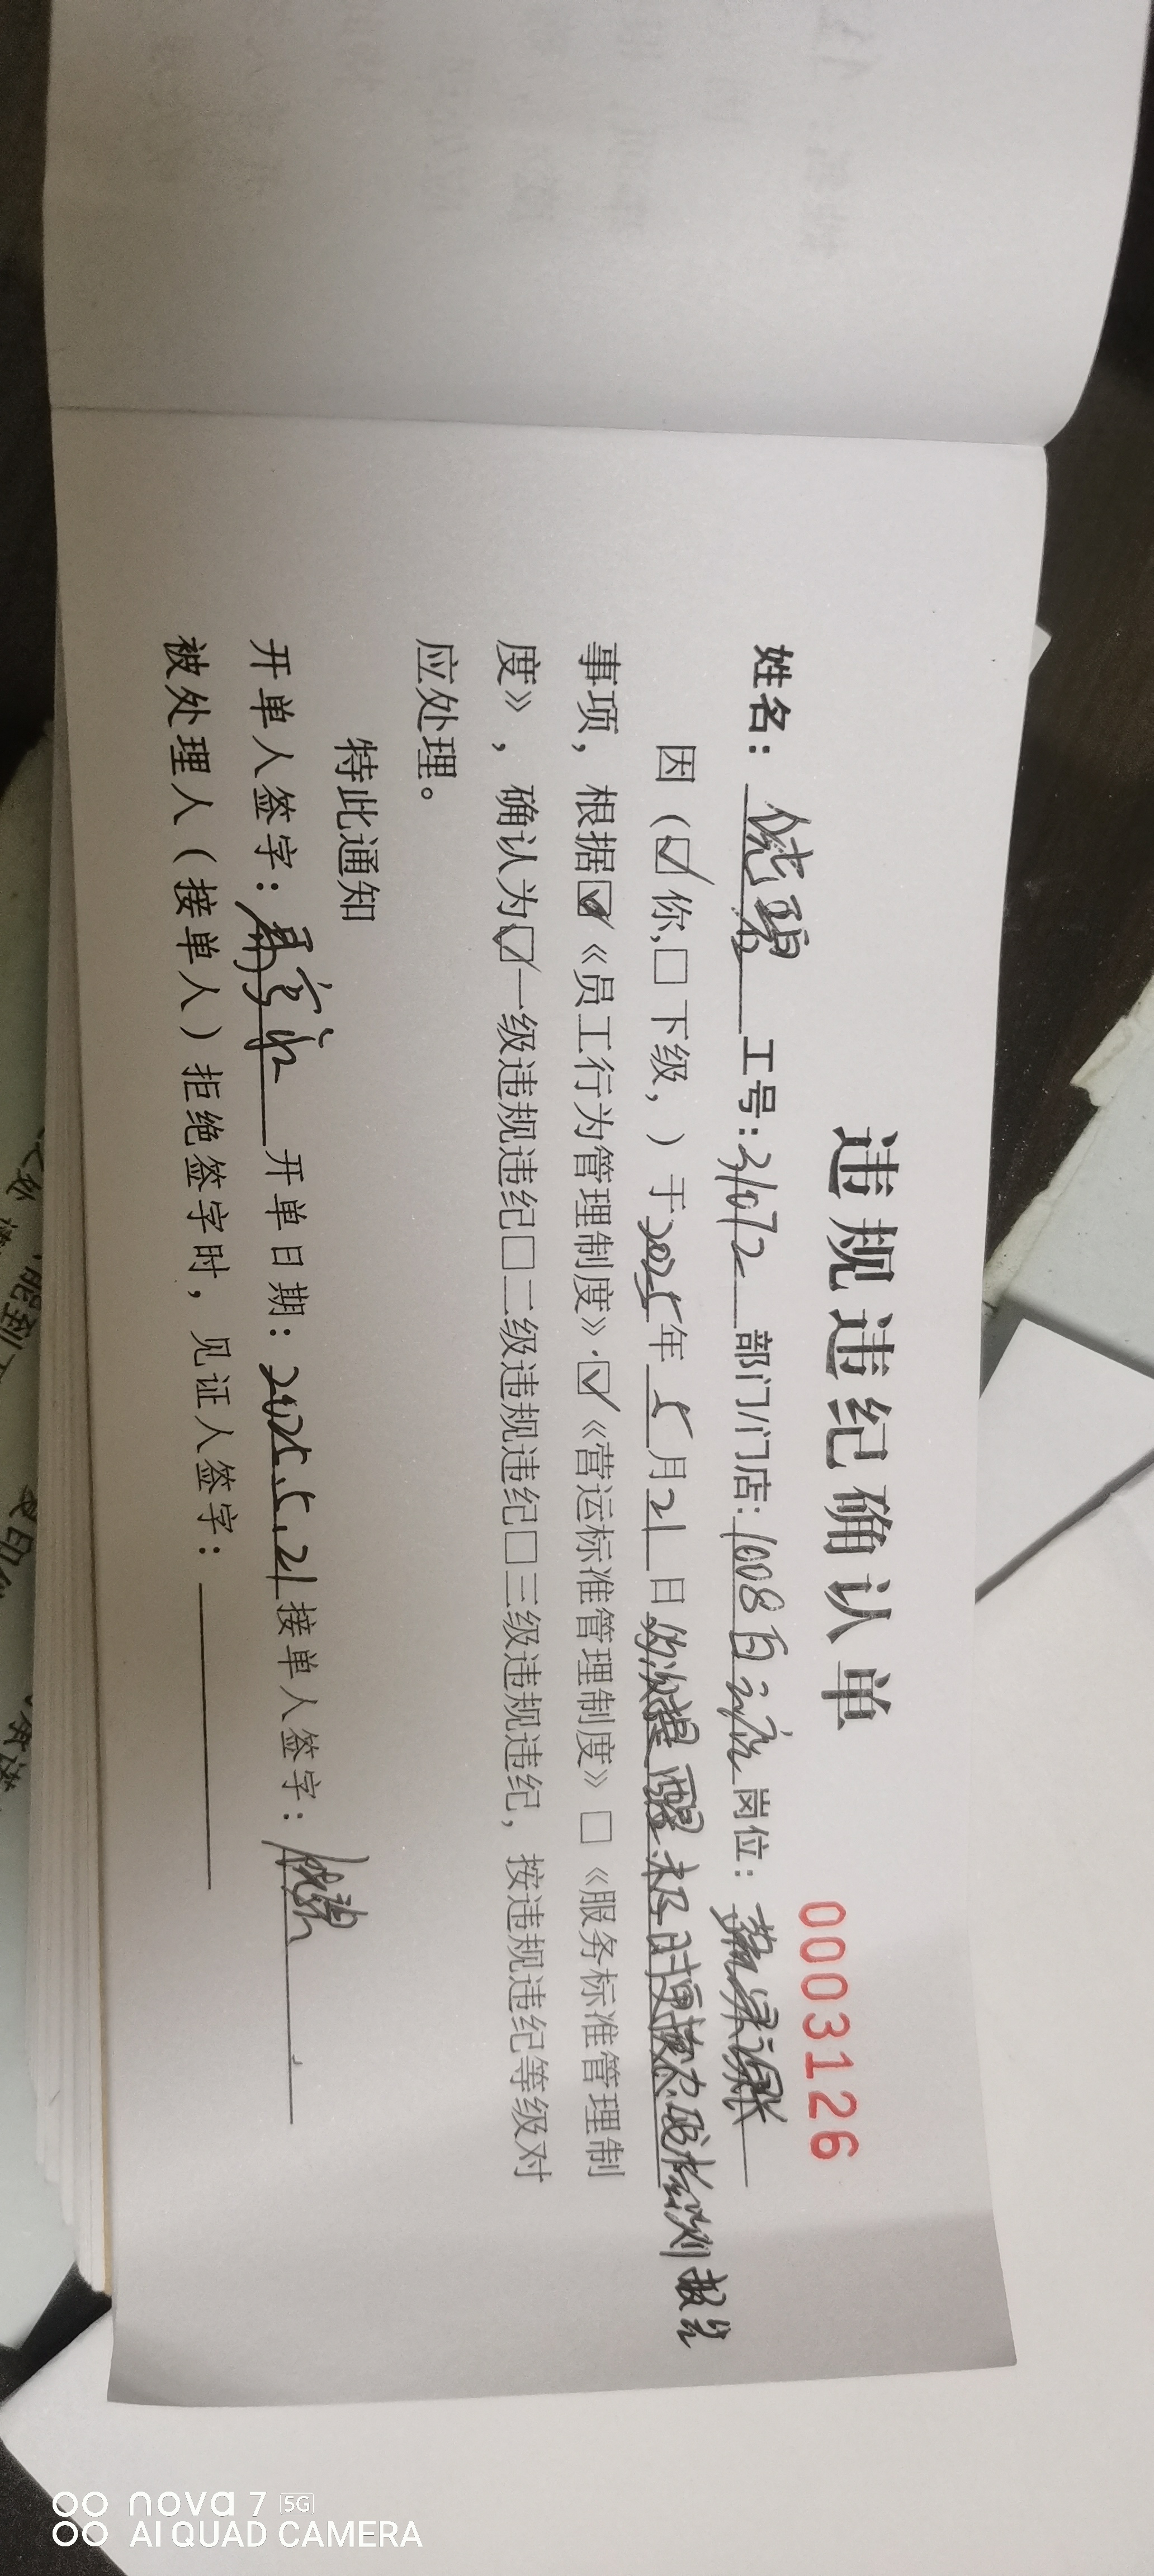 违规违纪确认单
0003126
姓名：饶碧 工号：31072 部门/门店：1008白云店 岗位：蔬果课长
因（☑你,□下级，）于2025年5月21日 的次提醒未及时更换农残检测报告
事项，根据☑《员工行为管理制度》.☑《营运标准管理制度》□《服务标准管理制
度》，确认为☑一级违规违纪□二级违规违纪□三级违规违纪，按违规违纪等级对
应处理。
特此通知
开单人签字： 开单日期：2025.5.21 接单人签字：饶碧
被处理人（接单人）拒绝签字时，见证人签字：
nova 7 5G
AI QUAD CAMERA